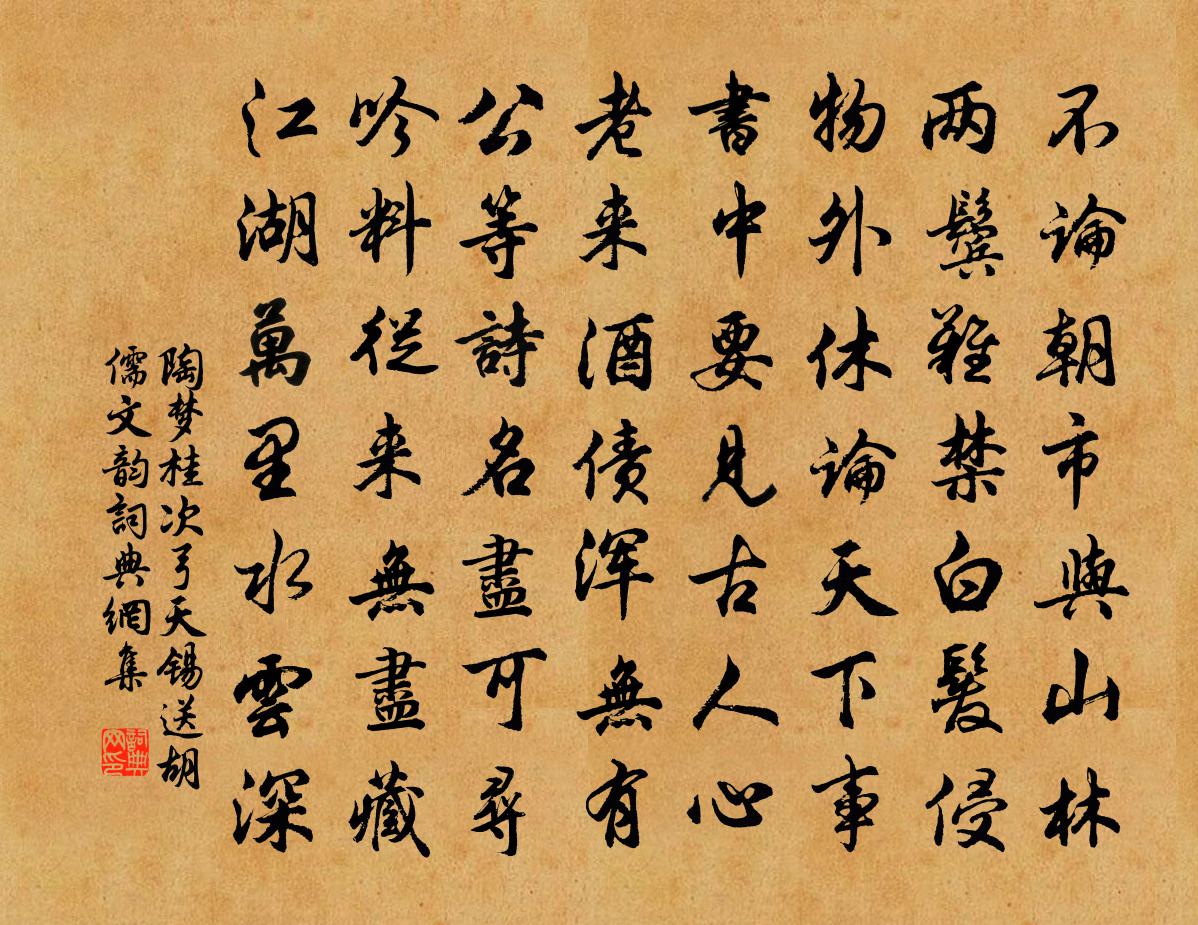 不論朝市與山林
两鬢難禁白髮侵
物外休論天下事
書中要見古人心
老来酒债浑無有
公等詩名盡可尋
吟料從来無盡藏
江湖萬里水雲深
陶梦桂次弓天锡送胡
儒文韵詞典網集
詞典
网印